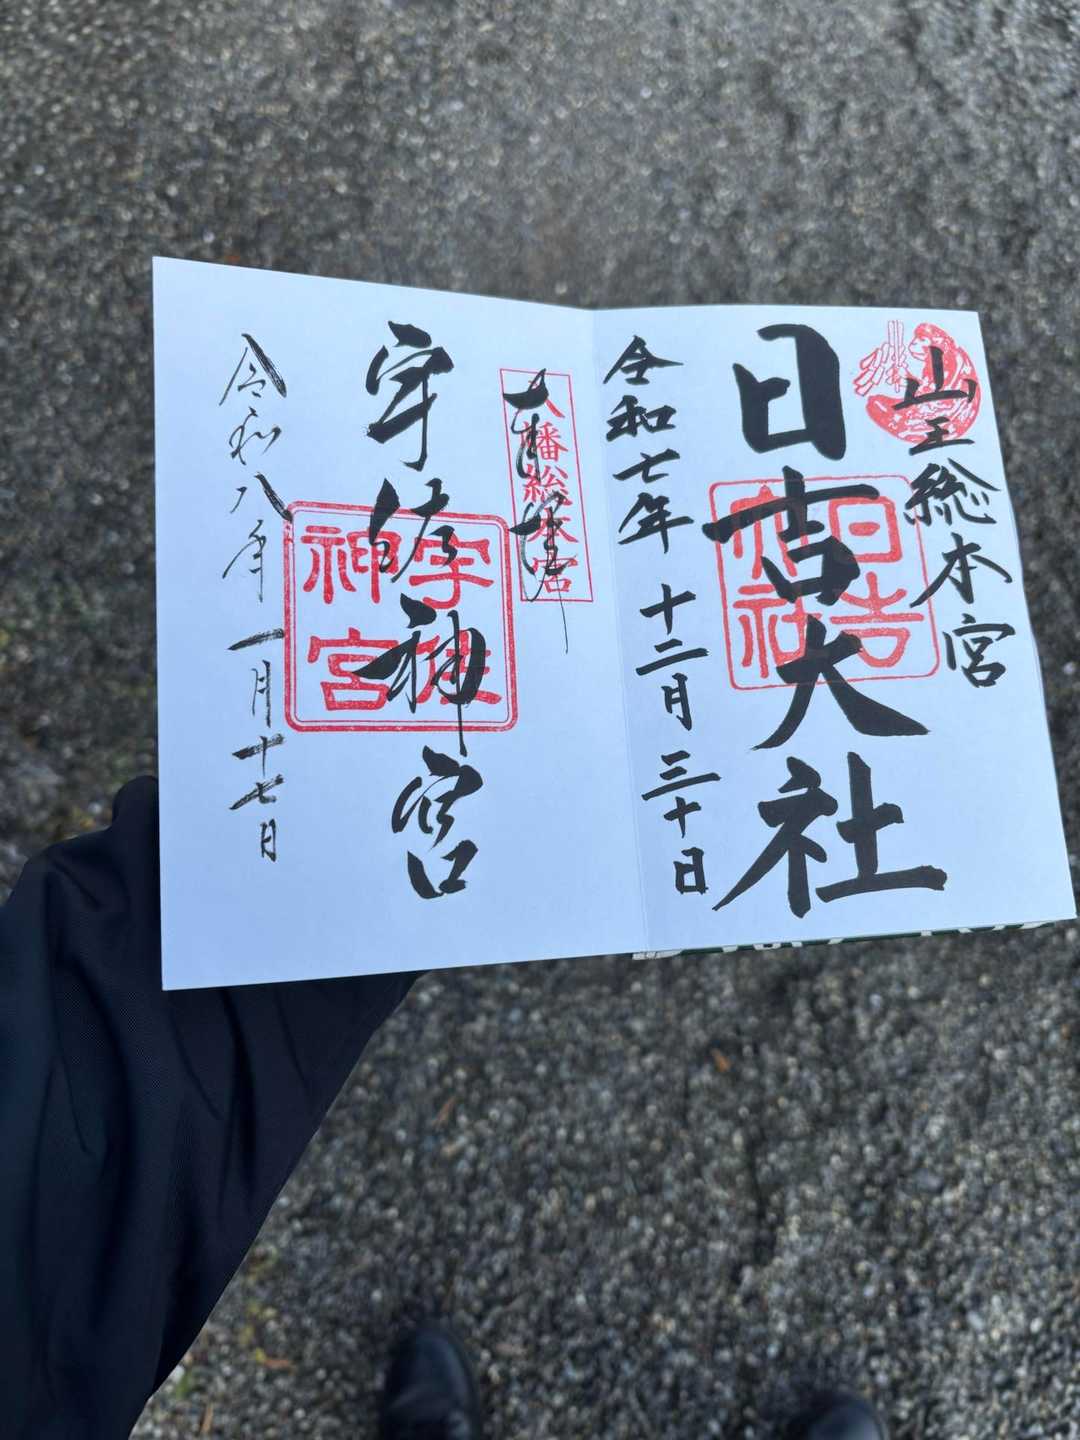 山王総本宮
日吉大社
日吉大社
令和七年 十二月 三十日
八幡総本宮
奉拝
宇佐神宮
宇佐神宮
令和八年 一月十七日